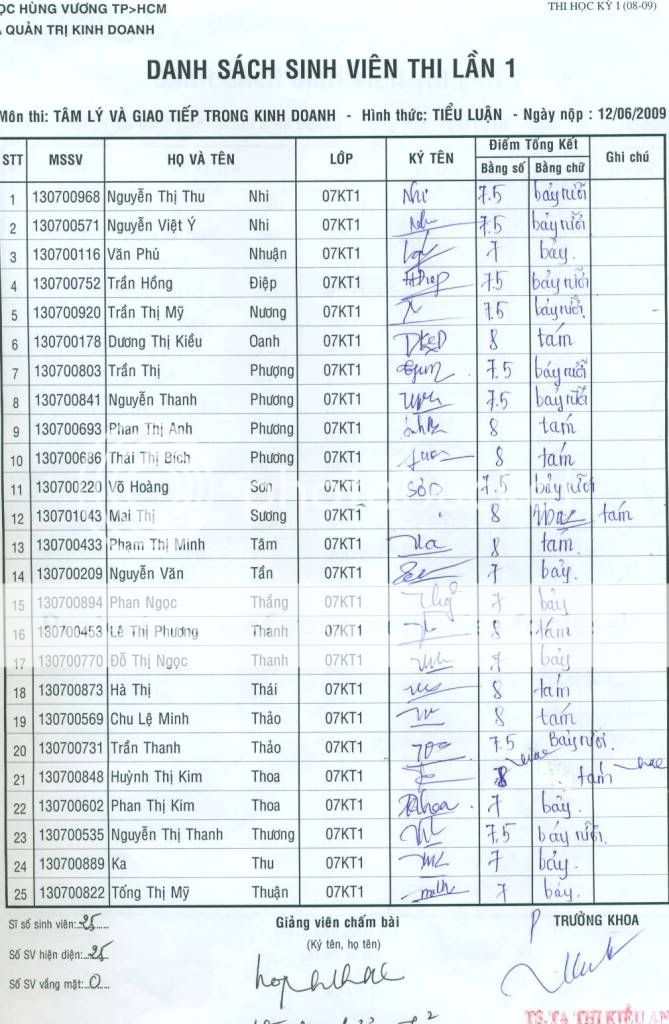 ỌC HÙNG VƯƠNG TP>HCM
THI HỌC KỲ I (08-09)
QUẢN TRỊ KINH DOANH
DANH SÁCH SINH VIÊN THI LẦN 1
Môn thi: TÂM LÝ VÀ GIAO TIẾP TRONG KINH DOANH - Hình thức: TIỂU LUẬN - Ngày nộp : 12/06/2009
STT MSSV HỌ VÀ TÊN LỚP KÝ TÊN Điểm Tổng Kết Ghi chú
Bằng số Bằng chữ
1 130700968 Nguyễn Thị Thu Nhi 07KT1 Nhi 7.5 bảy rưỡi
2 130700571 Nguyễn Việt Ý Nhi 07KT1 7.5 bảy rưỡi
3 130700116 Văn Phú Nhuận 07KT1 7 bảy.
4 130700752 Trần Hồng Điệp 07KT1 7.5 bảy rưỡi
5 130700920 Trần Thị Mỹ Nương 07KT1 7.5 bảy rưỡi
6 130700178 Dương Thị Kiều Oanh 07KT1 8 tám
7 130700803 Trần Thị Phượng 07KT1 7.5 bảy rưỡi
8 130700841 Nguyễn Thanh Phương 07KT1 7.5 bảy rưỡi
9 130700693 Phan Thị Anh Phương 07KT1 8 tám
10 130700686 Thái Thị Bích Phương 07KT1 8 tám
11 130700220 Võ Hoàng Sơn 07KT1 Sơn 7.5 bảy rưỡi
12 130701043 Mai Thị Sương 07KT1 8 tám
13 130700433 Phạm Thị Minh Tâm 07KT1 8 tám
14 130700209 Nguyễn Văn Tẩn 07KT1 7 bảy.
15 130700894 Phan Ngọc Thắng 07KT1 7 bảy
16 130700453 Lê Thị Phương Thanh 07KT1 8 tám
17 130700770 Đỗ Thị Ngọc Thanh 07KT1 7 bảy
18 130700873 Hà Thị Thái 07KT1 8 tám
19 130700569 Chu Lệ Minh Thảo 07KT1 8 tám
20 130700731 Trần Thanh Thảo 07KT1 7.5 Bảy rưỡi.
21 130700848 Huỳnh Thị Kim Thoa 07KT1 8 tám
22 130700602 Phan Thị Kim Thoa 07KT1 7 bảy.
23 130700535 Nguyễn Thị Thanh Thương 07KT1 7.5 bảy rưỡi.
24 130700889 Ka Thu 07KT1 7 bảy.
25 130700822 Tống Thị Mỹ Thuận 07KT1 7 bảy.
Sĩ số sinh viên:..25....
Giảng viên chấm bài
TRƯỞNG KHOA
(Ký tên, họ tên)
Số SV hiện diện:..25
Số SV vắng mặt:..0....
TS.TẠ THỊ KIỀU AN